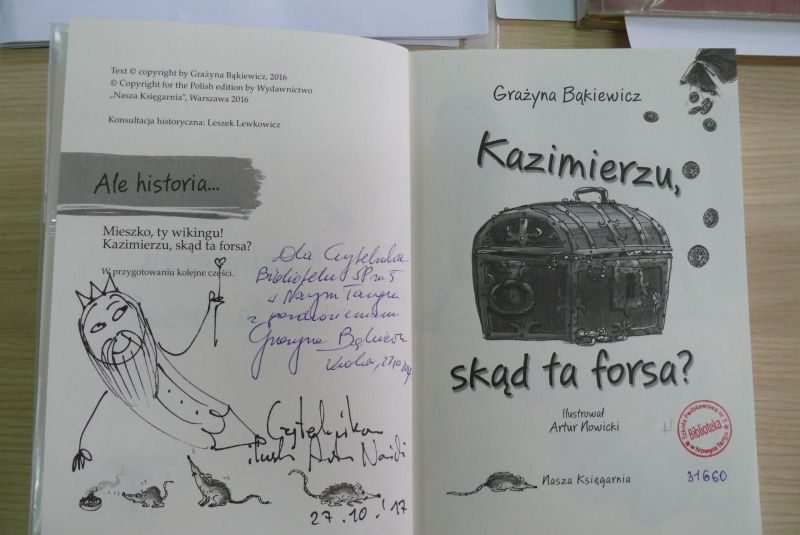 Text © copyright by Grażyna Bąkiewicz, 2016
© Copyright for the Polish edition by Wydawnictwo
„Nasza Księgarnia”, Warszawa 2016
Konsultacja historyczna: Leszek Lewkowicz
Ale historia...
Mieszko, ty wikingu!
Kazimierzu, skąd ta forsa?
W przygotowaniu kolejne części.
Dla Czytelnika
Biblioteki SP nr 5
w Nowym Targu
z pozdrowieniami
Grażyna Bąkiewicz
Czytelnikom
Artur Nowicki
27.10.'17
Grażyna Bąkiewicz
Kazimierzu,
skąd ta forsa?
Ilustrował
Artur Nowicki
Szkoła Podstawowa nr 5
Biblioteka
w Nowym Targu
31660
Nasza Księgarnia